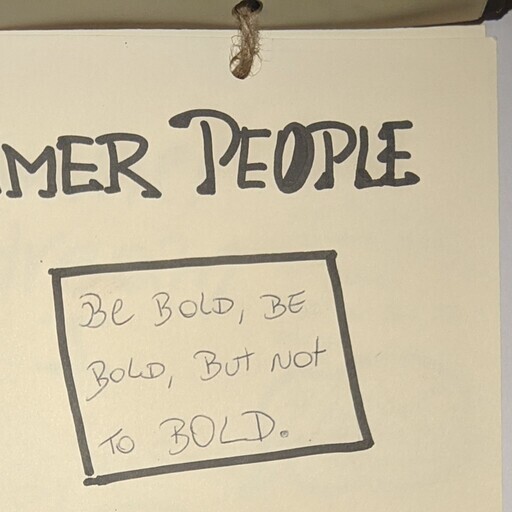 MER PEOPLE
Be BOLD, BE
BOLD, BUt NOt
TO BOLD.